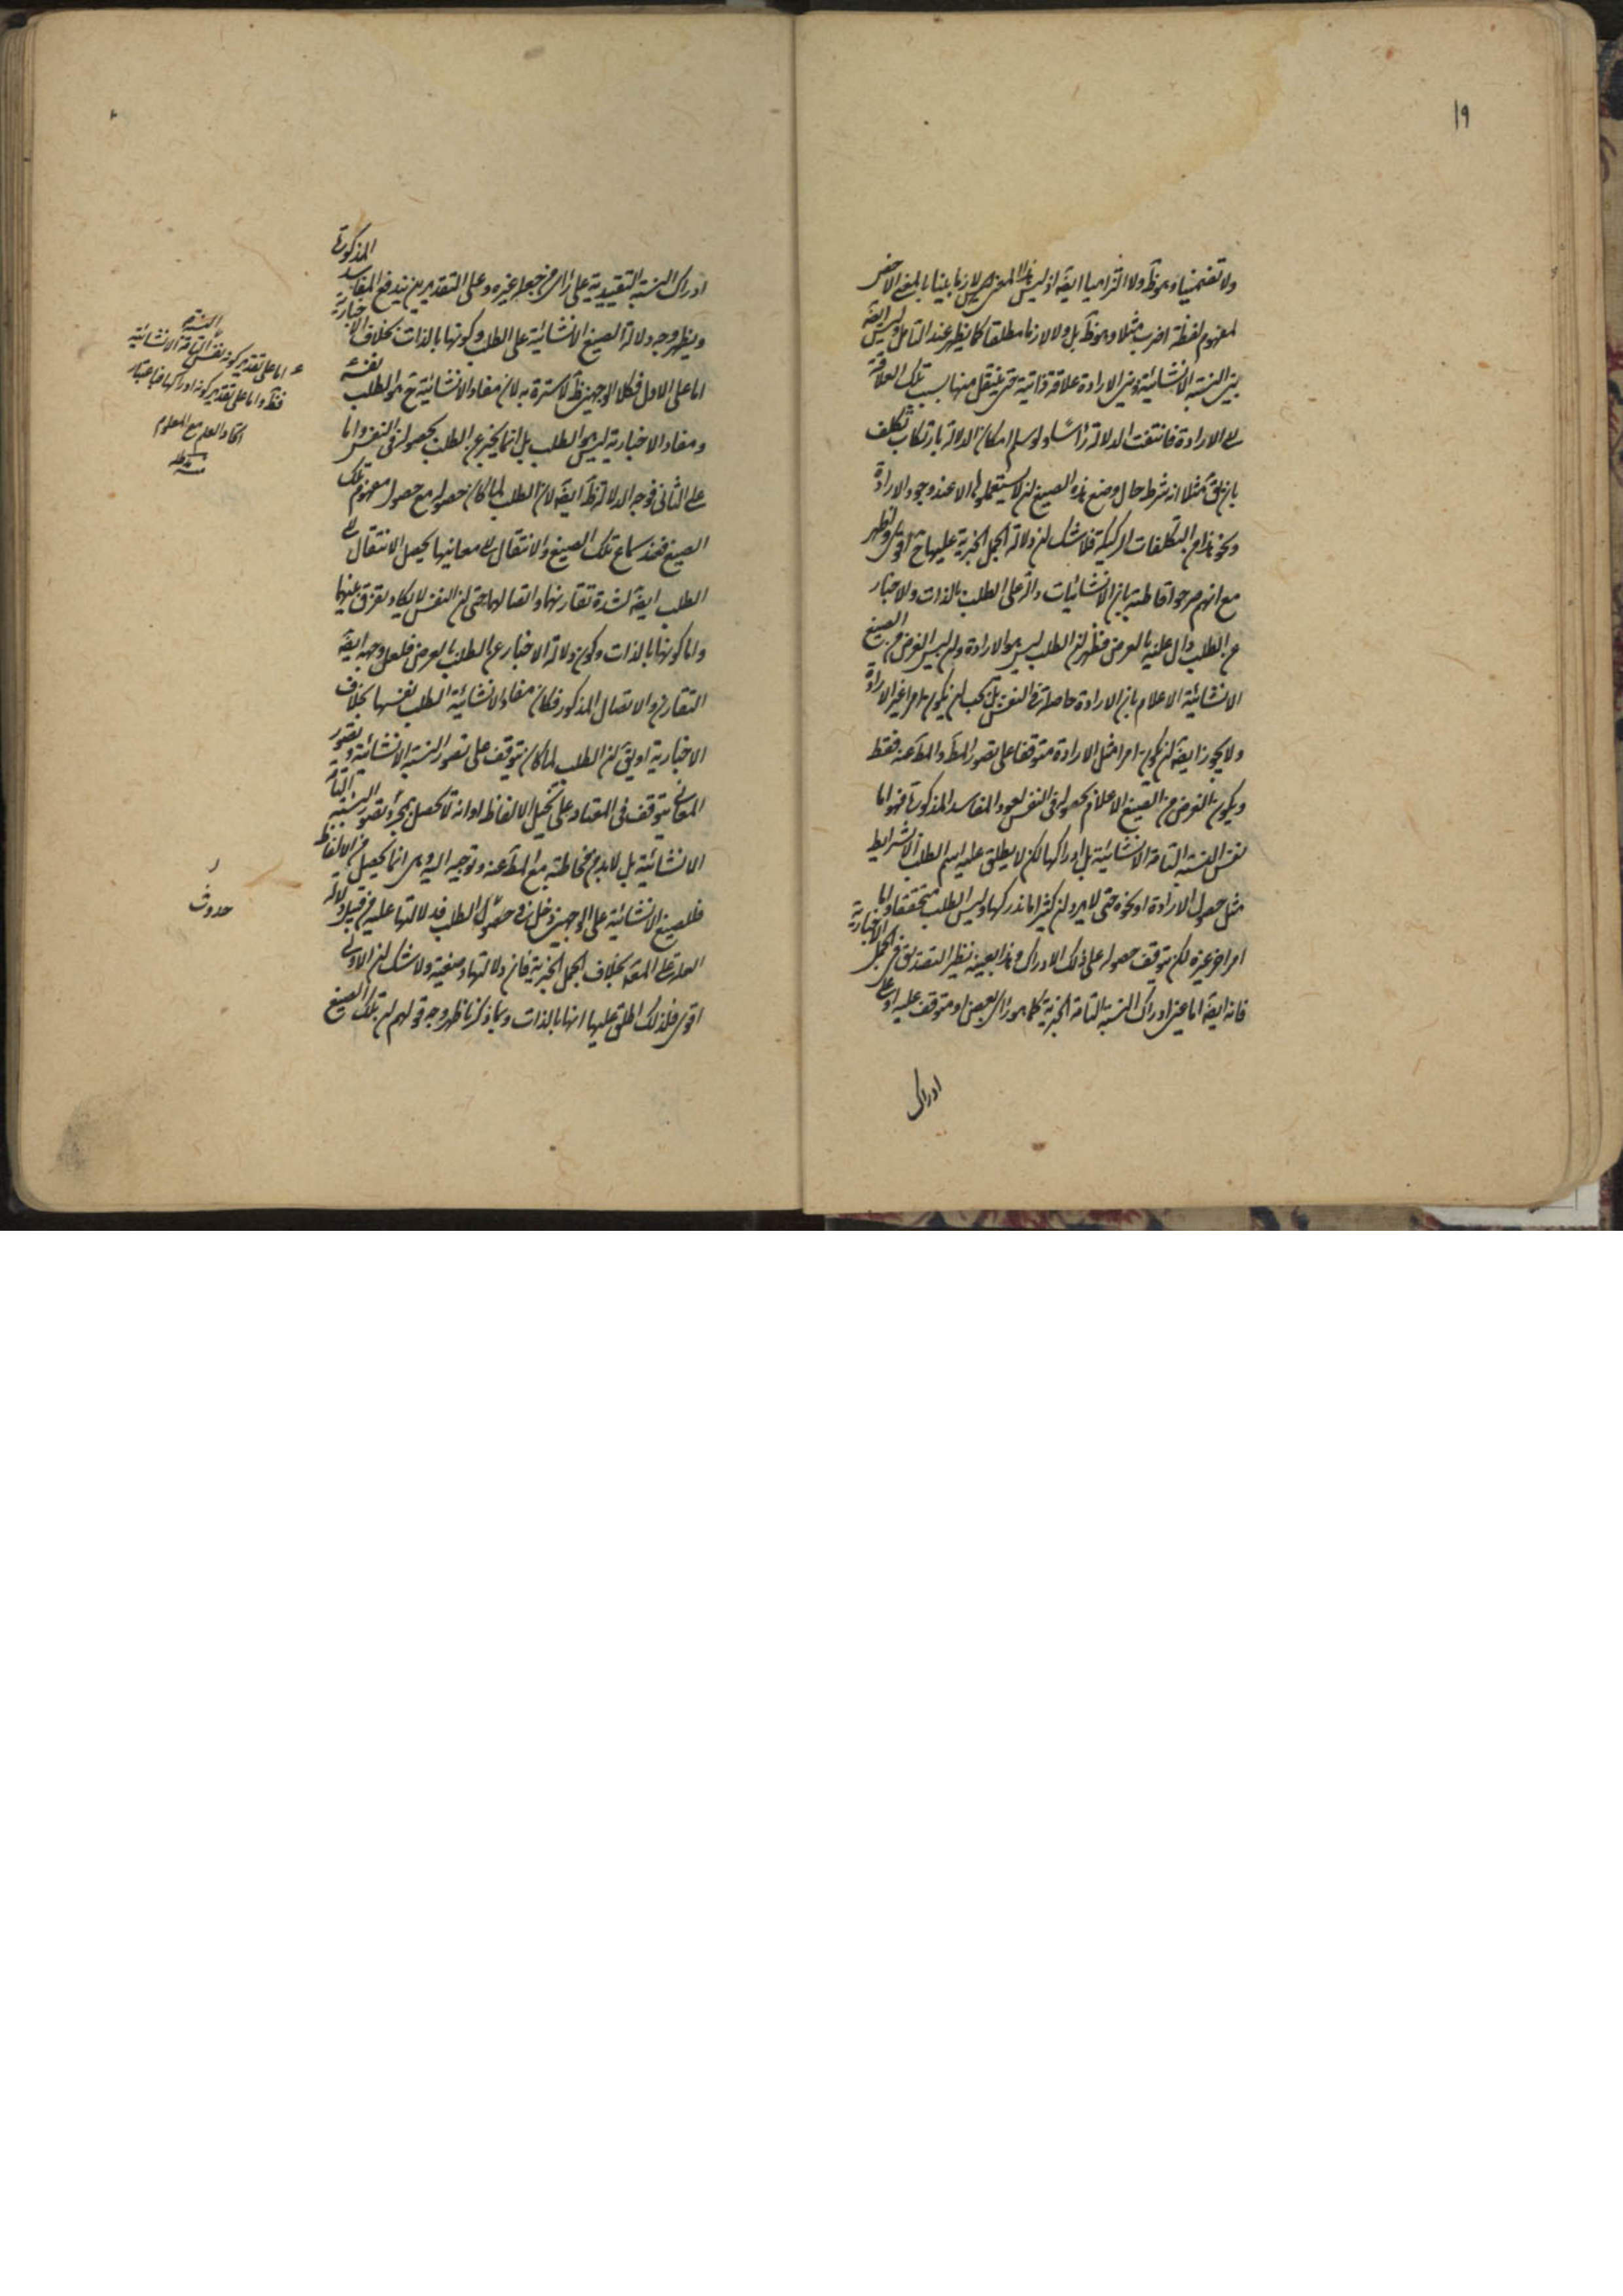 ١٩
ولا تضمنيا وهو ظ ولا التزاميا ايضا اذ ليس هذا المعنى لازما بينا بالمعنى الاخص
لمفهوم لفظة اضرب مثلا وهو ظ بل ولا لازما مطلقا كما يظهر عند التامل وليس ايضا
بين النسبة الانشائية وبين الارادة علاقة ذاتية حتى ينتقل منها بسبب تلك العلاقة
الى الارادة فانتفت الدلالة راسا ولو سلم امكان الدلالة بارتكاب تكلف
بان يق مثلا انه شرط حال وضع هذه الصيغ ان لا يستعملوها الا عند وجود الارادة
ونحو هذا من التكلفات الركيكة فلا شك ان دلالة الجمل الخبرية عليها ح اقوى واظهر
مع انهم صرحوا قاطبة بان الانشائيات دالة على الطلب بالذات والاخبار
عن الطلب دال عليه بالعرض فظهر ان الطلب ليس هو الارادة وان ليس الغرض من الصيغ
الانشائية الاعلام بان الارادة حاصلة في النفس بل يجب ان يكون امرا غير الارادة
ولا يجوز ايضا ان يكون امرا مثل الارادة متوقفا على تصور المط والمط عنه فقط
ويكون الغرض من الصيغ الاعلام بحصوله في النفس لعود المفاسد المذكورة فهو اما
نفس النسبة التامة الانشائية بل ادراكها لكن لا يطلق عليه اسم الطلب الا بشرايط
مثل حصول الارادة او نحوه حتى لا يرد ان كثيرا ما ندركها وليس الطلب متحققا واما
امر اخر غيره لكن يتوقف حصوله على ذلك الادراك وهذا بعينه نظير التصديق في الجمل الاخبارية
فانه ايضا اما عين ادراك النسبة التامة الخبرية كما هو راى بعض او متوقف عليه او على
ادراك
ادراك النسبة التقييدية على راى من جعله غيره وعلى التقديرين يندفع المفاسد المذكورة
ويظهر وجه دلالة الصيغ الانشائية على الطلب وكونها بالذات بخلاف الاخبارية
اما على الاول فكلا الوجهين ظ لا سترة به لان مفاد الانشائية ح هو الطلب نفسه
ومفاد الاخبارية ليس هو الطلب بل انما يخبر عن الطلب بحصوله في النفس واما
على الثاني فوجه الدلالة ظ ايضا لان الطلب لما كان حصوله مع حصول مفهوم تلك
الصيغ فعند سماع تلك الصيغ والانتقال الى معانيها يحصل الانتقال الى
الطلب ايضا لشدة تقارنهما واتصالهما حتى ان النفس لا يكاد يفرق بينهما
واما كونها بالذات وكون دلالة الاخبار عن الطلب بالعرض فلعل وجهه ايضا
التقارن والاتصال المذكور فكان مفاد الانشائية الطلب نفسها بخلاف
الاخبارية او يق ان الطلب لما كان يتوقف على تصور النسبة الانشائية وتصور
المعاني يتوقف في المعتاد على تخيل الالفاظ او انه لا تحصل بمجرد تصور النسبة التامة
الانشائية بل لابد من مخاطبة مع المط عنه وتوجيه اليه وهي انما يحصل من الالفاظ
فللصيغ الانشائية على الوجهين دخل في حصول الطلب فدلالتها عليه من قبيل دلالة
العلة على المعلول بخلاف الجمل الخبرية فان دلالتها وضعية ولا شك ان الاولى
اقوى فلذلك اطلق عليها انها بالذات وبما ذكرنا ظهر وجه قولهم ان تلك الصيغ
اما على تقدير كونه نفس النسبة التامة الانشائية
فظ واما على تقدير كونه ادراكها فباعتبار
اتحاد العلم مع المعلوم
منه
حدوث